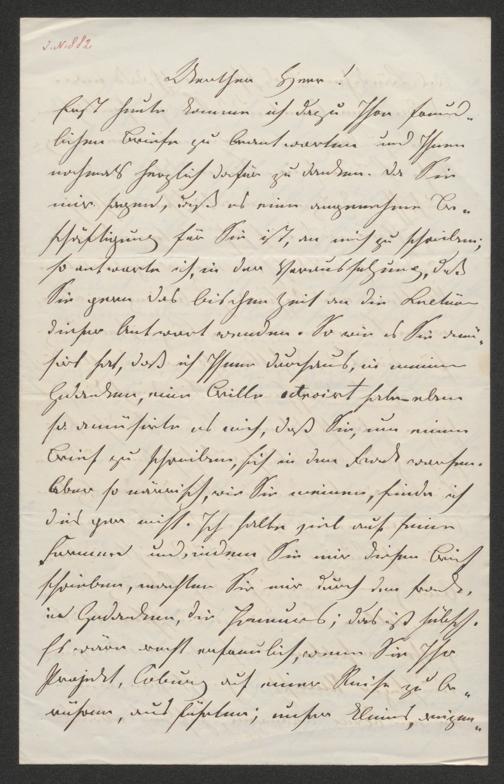 J.N. 882
Werther Herr!
Erst heute komme ich dazu Ihre freund-
lichen Briefe zu beantworten und Ihnen
nochmals herzlich dafür zu danken. Da Sie
mir sagen, daß es eine angenehme Be-
schäftigung für Sie ist, an mich zu schreiben,
so antworte ich, in der Voraussetzung, daß
Sie gern das bischen Zeit an die Lectüre
dieser Antwort wenden. So wie es Sie amü-
sirt hat, daß ich Ihnen durchaus, in meinen
Gedanken, eine Brille octroirt habe eben
so amüsirte es mich, daß Sie, um einen
Brief zu schreiben, sich in den Frack warfen.
Aber so närrisch, wie Sie meinen, finde ich
dies gar nicht. Ich halte viel auf feine
Formen und indem Sie mir diesen Brief
schrieben, machten Sie mir durch den Frack,
in Gedanken, die Honneurs; das ist hübsch.
Es wäre recht erfreulich, wenn Sie Ihr
Projekt, Coburg auf einer Reise zu be-
rühren, ausführten; unser kleines,